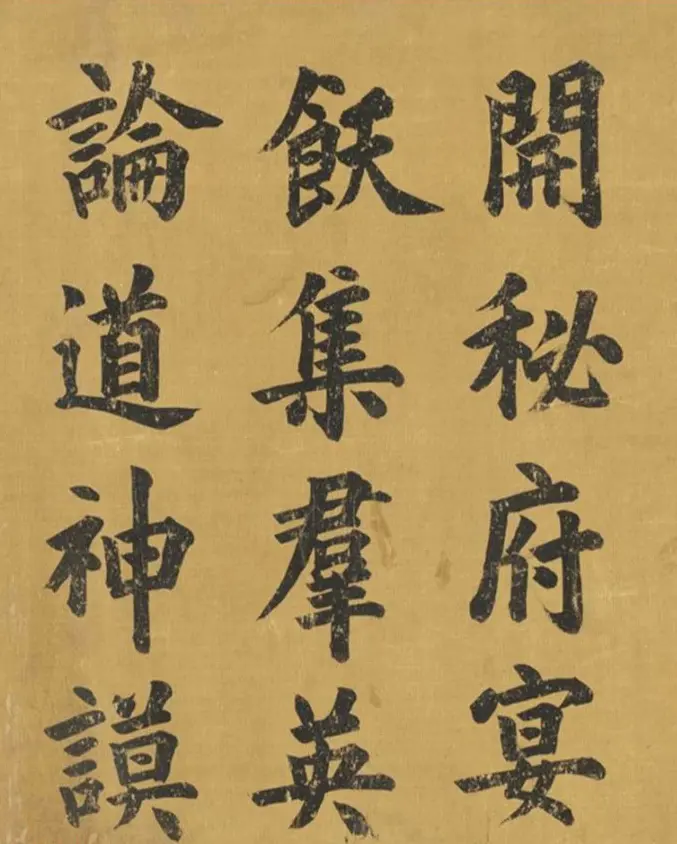 開秘府宴
飫集羣英
論道神謨